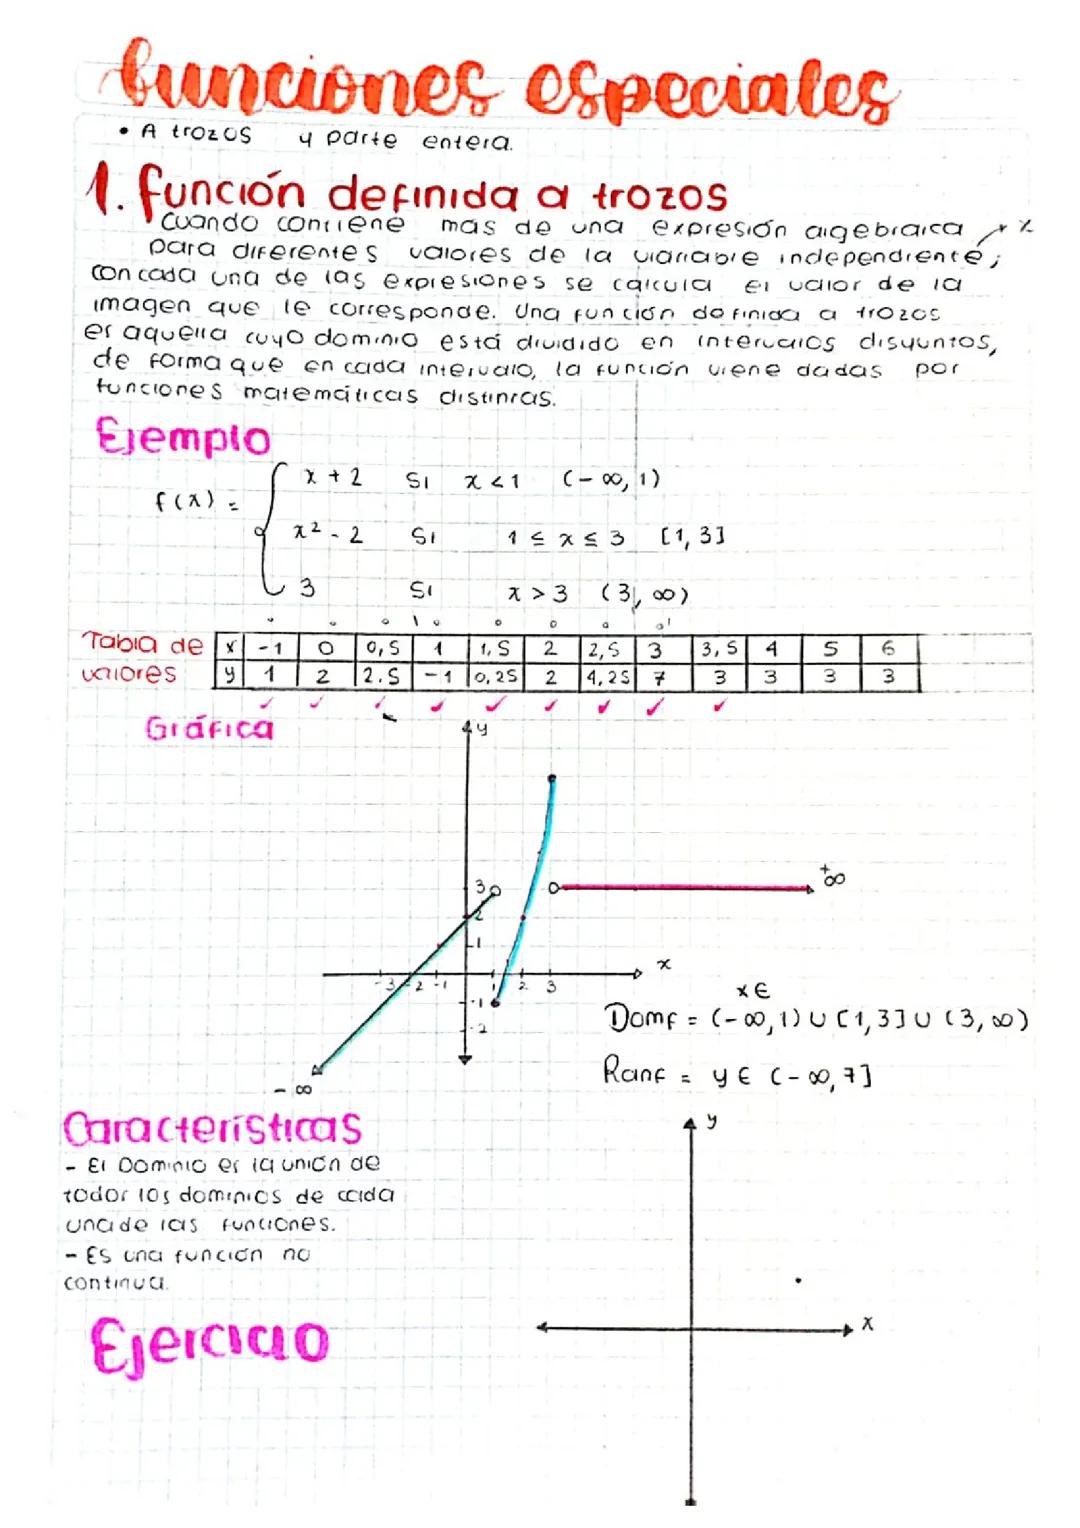 funciones especiales
• A trozos y parte entera.
1. función definida a trozos
Cuando contiene mas de una expresión algebraica x
para diferentes valores de la variable independiente;
con cada una de las expresiones se calcula el valor de la
imagen que le corresponde. Una función definida a trozos
es aquella cuyo dominio está dividido en intervalos disyuntos,
de forma que en cada intervalo, la función viene dadas por
funciones matemáticas distintas.
Ejemplo
x + 2 si x < 1 (-∞, 1)
f(x) =
x² - 2 si 1 ≤ x ≤ 3 [1, 3]
3 si x > 3 (3, ∞)
Tabla de x -1 0 0,5 1 1,5 2 2,5 3 3,5 4 5 6
valores y 1 2 2.5 -1 0,25 2 4,25 7 3 3 3 3
Gráfica
y
+∞
3
2
1
x
-3 -2 -1 1 2 3
-1
-2
-∞
x ∈
Domf = (-∞, 1) ∪ [1, 3] ∪ (3, ∞)
Ranf = y ∈ (-∞, 7]
Características
- El Dominio es la unión de
todos los dominios de cada
una de las funciones.
- Es una función no
continua.
y
x
Ejercicio